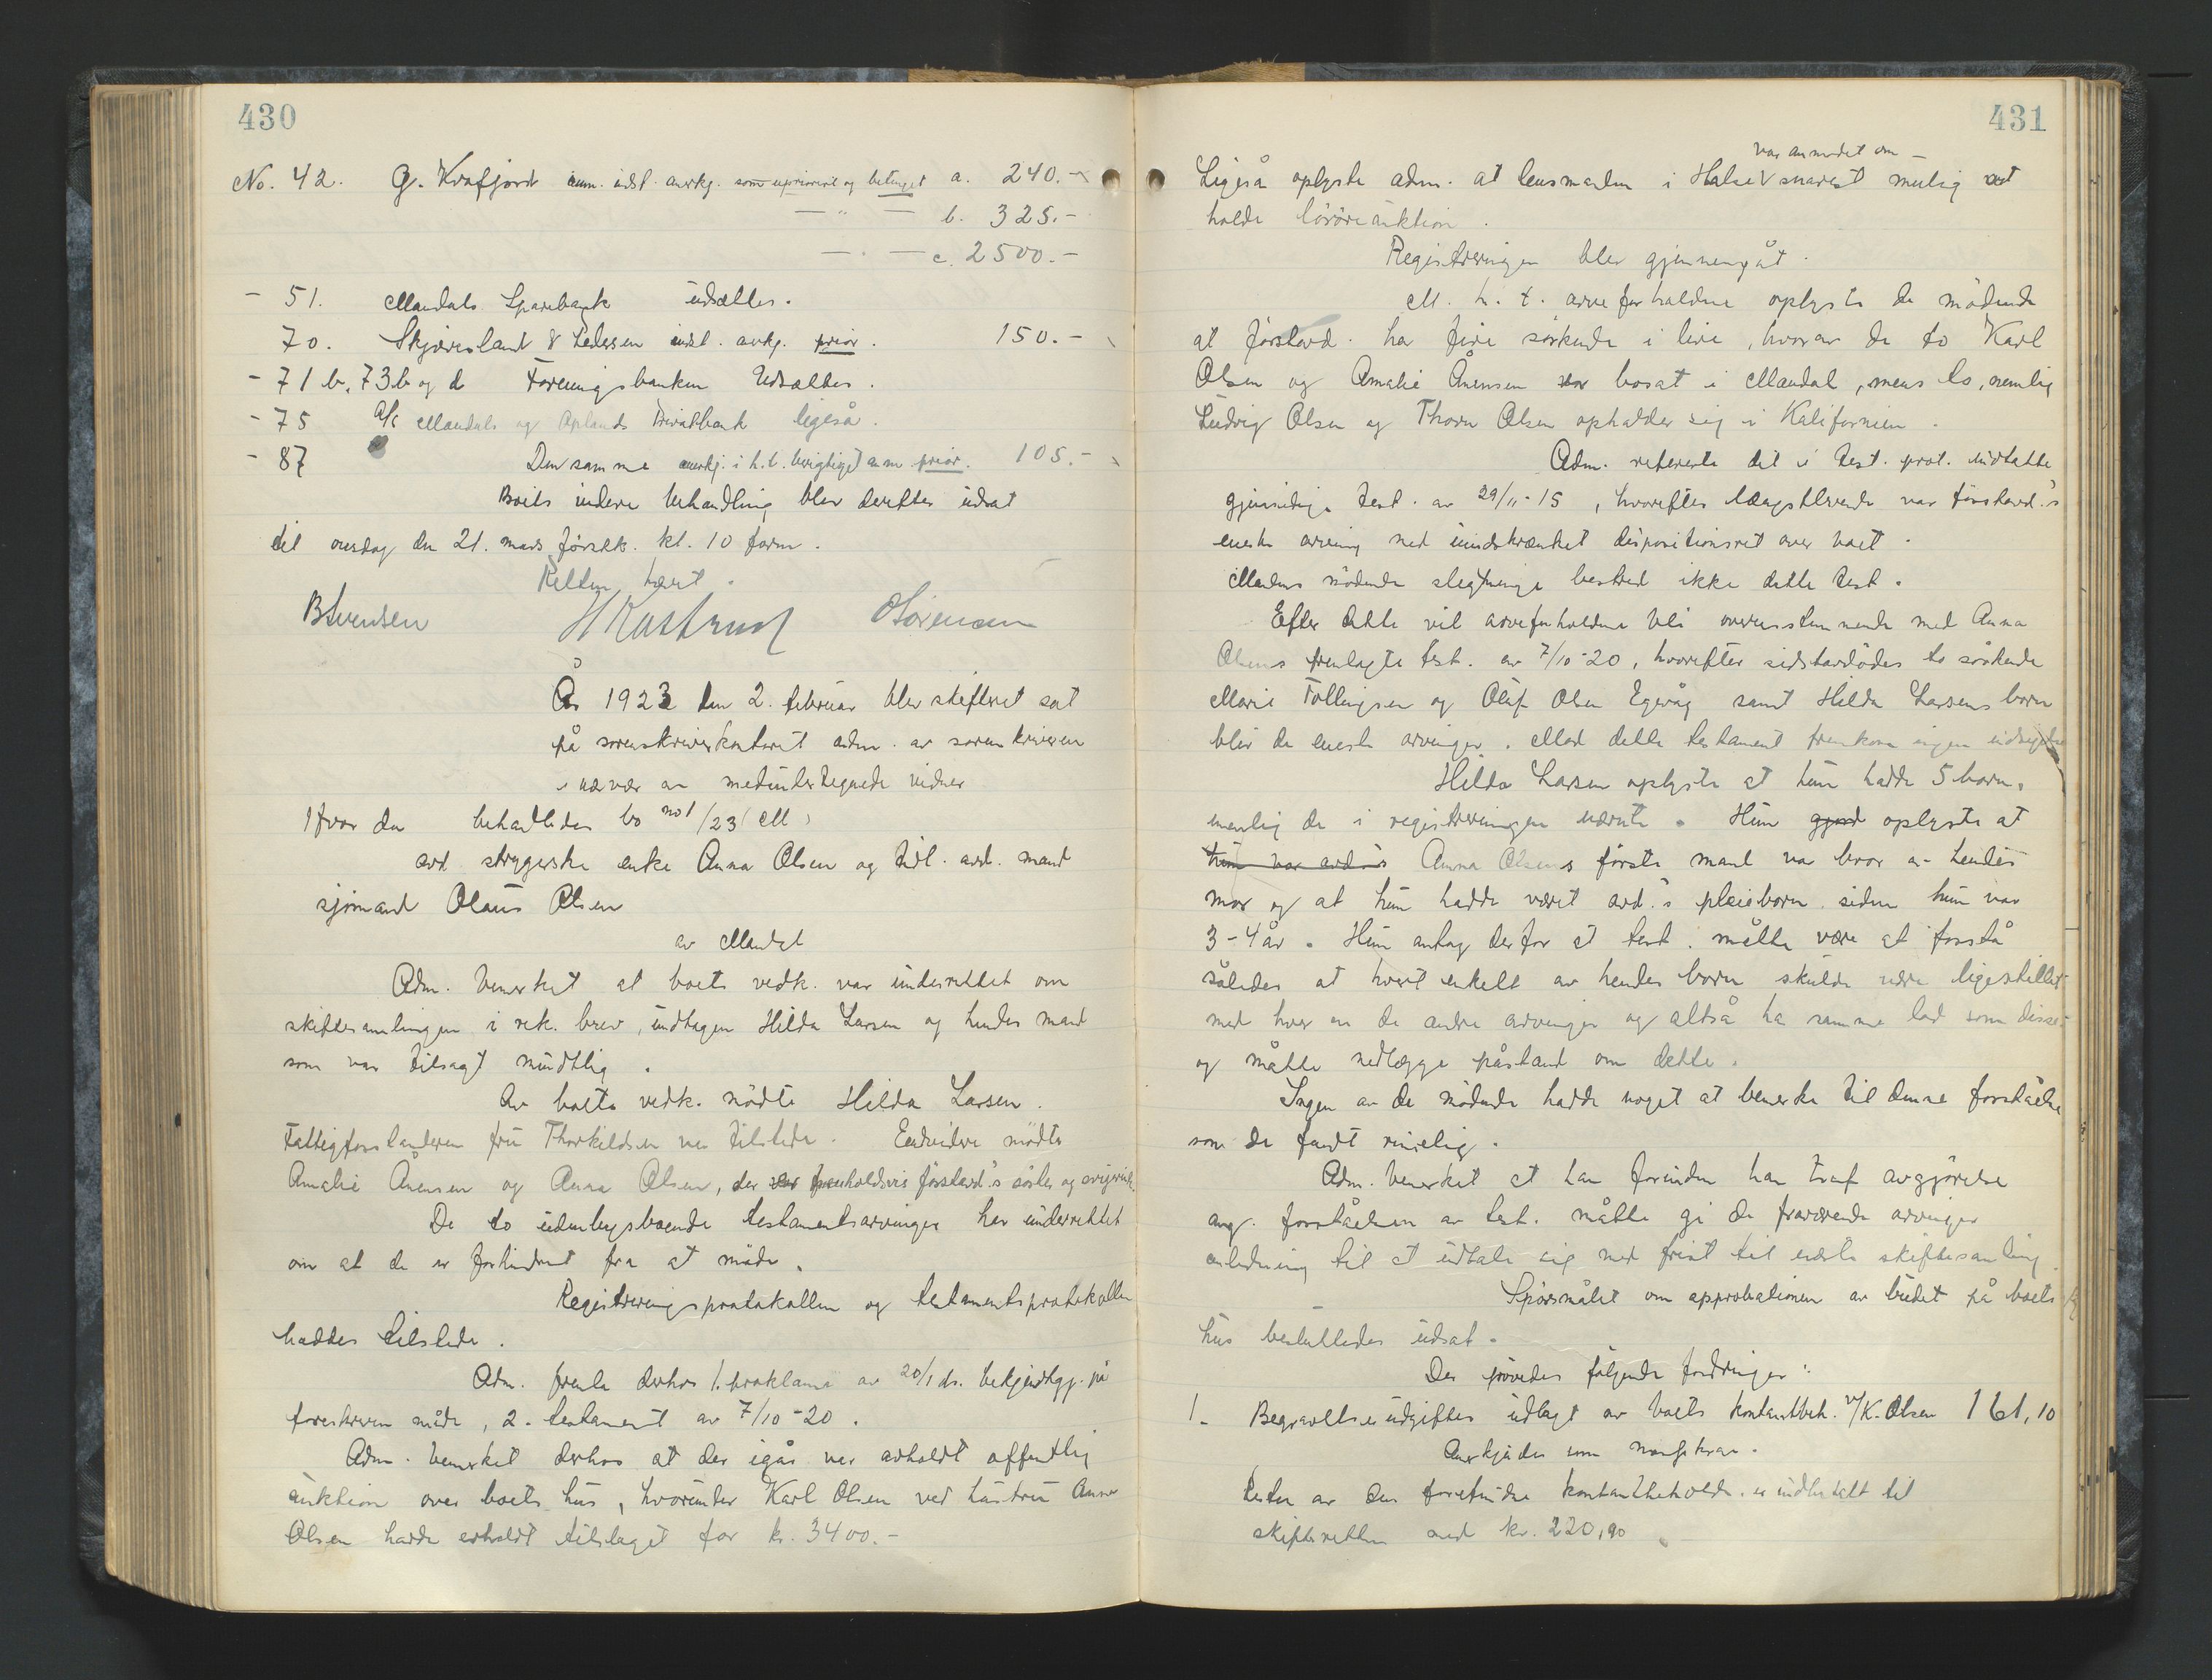 430
No. 42. G. Krafjord anm. udst. anerkj. som uprioritert og betinget a. 240.-
— " — b. 325.-
— " — c. 2500.-
- 51. Mandals Sparebank udsættes.
70. Skjævesland & Pedersen udst. ankj. prior. 150.-
- 71 b, 73 b og d Foreningsbanken Udsættes.
- 75 A/S Mandals og Oplands Privatbank ligeså.
- 87 Den samme anerkj. i h.t. berigtiget anm. prior. 105.-
Boets videre behandling blev derefter udsat
til onsdag den 21. mars førstk. kl. 10 form.
Retten hævet.
B Svensen H Kastrud O Sørensen
År 1923 den 2. februar blev skifteret sat
på sorenskriverkontoret adm. av sorenskriveren
i nærvær av medundertegnede vidner
Hvor da behandledes bo no 1/23 M
avd. strygerske enke Anna Olsen og tidl. avd. mand
sjømand Olaus Olsen
av Mandal
Adm. bemerket at boets vedk. var underrettet om
skiftesamlingen i rek. brev, undtagen Hilda Larsen og hendes mand
som var tilsagt mundtlig.
Av boets vedk. mødte Hilda Larsen.
Fattigforstanderen fru Thorkildsen var tilstede. Endvidere mødte
Amalie Ånensen og Anna Olsen, der var henholdsvis førstavd.'s søster og svigerinde.
De to udenbysboende testamentsarvinger har underrettet
om at de er forhindret fra at møde.
Registreringsprotokollen og testamentsprotokollen
haddes tilstede.
Adm. fremla derhos 1. proklama av 20/1 ds. bekjendtgj. på
foreskreven måde, 2. testament av 7/10-20.
Adm. bemerket derhos at der igår var avholdt offentlig
auktion over boets hus, hvorunder Karl Olsen ved hustru Anna
Olsen hadde erholdt tilslaget for kr. 3400.-
431
var anmodet om
Ligeså oplyste adm. at lensmanden i Halse V snarest mulig at
holde løsøreauktion.
Registreringen blev gjennemgåt.
M. h. t. arveforholdene oplyste de mødende
at førstavd. har fire søskende i live, hvorav de to Karl
Olsen og Amalie Ånensen er bosat i Mandal, mens to, nemlig
Ludvig Olsen og Thorv Olsen opholder sig i Kalifornien.
Adm. refererte det i test. prot. indtatte
gjensidige test. av 29/11-15, hvorefter længstlevende var førstavd.'s
eneste arving med uindskrænket dispositionsret over boet.
Mandens mødende slegtninge bestred ikke dette test.
Efter dette vil arveforholdene bli overensstemmende med Anna
Olsens fremlagte test. av 7/10-20, hvorefter sidstavdødes to søskende
Marie Tollingsen og Oluf Olsen Egevåg samt Hilda Larsens børn
blir de eneste arvinger. Mod dette testament fremkom ingen indsigelse
Hilda Larsen oplyste at hun hadde 5 børn,
nemlig de i registreringen nævnte. Hun gjord oplyste at
hun var avd.'s Anna Olsens første mand var bror av hendes
mor og at hun hadde været avd.'s pleiebarn siden hun var
3-4 år. Hun antog derfor at test. måtte være at forstå
således at hvert enkelt av hendes børn skulde være ligestillet
med hver av de andre arvinger og altså ha samme lod som disse
og måtte nedlægge påstand om dette.
Ingen av de mødende hadde noget at bemerke til denne forståelse
som de fandt rimelig.
Adm. bemerket at han forinden han traf avgjørelse
ang. forståelsen av test. måtte gi de fraværende arvinger
anledning til at udtale sig med frist til næste skiftesamling.
Spørsmålet om approbationen av budet på boets
hus besluttedes udsat.
Der prøvedes følgende fordringer:
1. Begravelsesudgifter udlagt av boets kontantbeh. v/K. Olsen 161,10
Anerkjendes som massekrav.
Resten av den forefundne kontantbeholdn. er indbetalt til
skifteretten med kr. 220,90